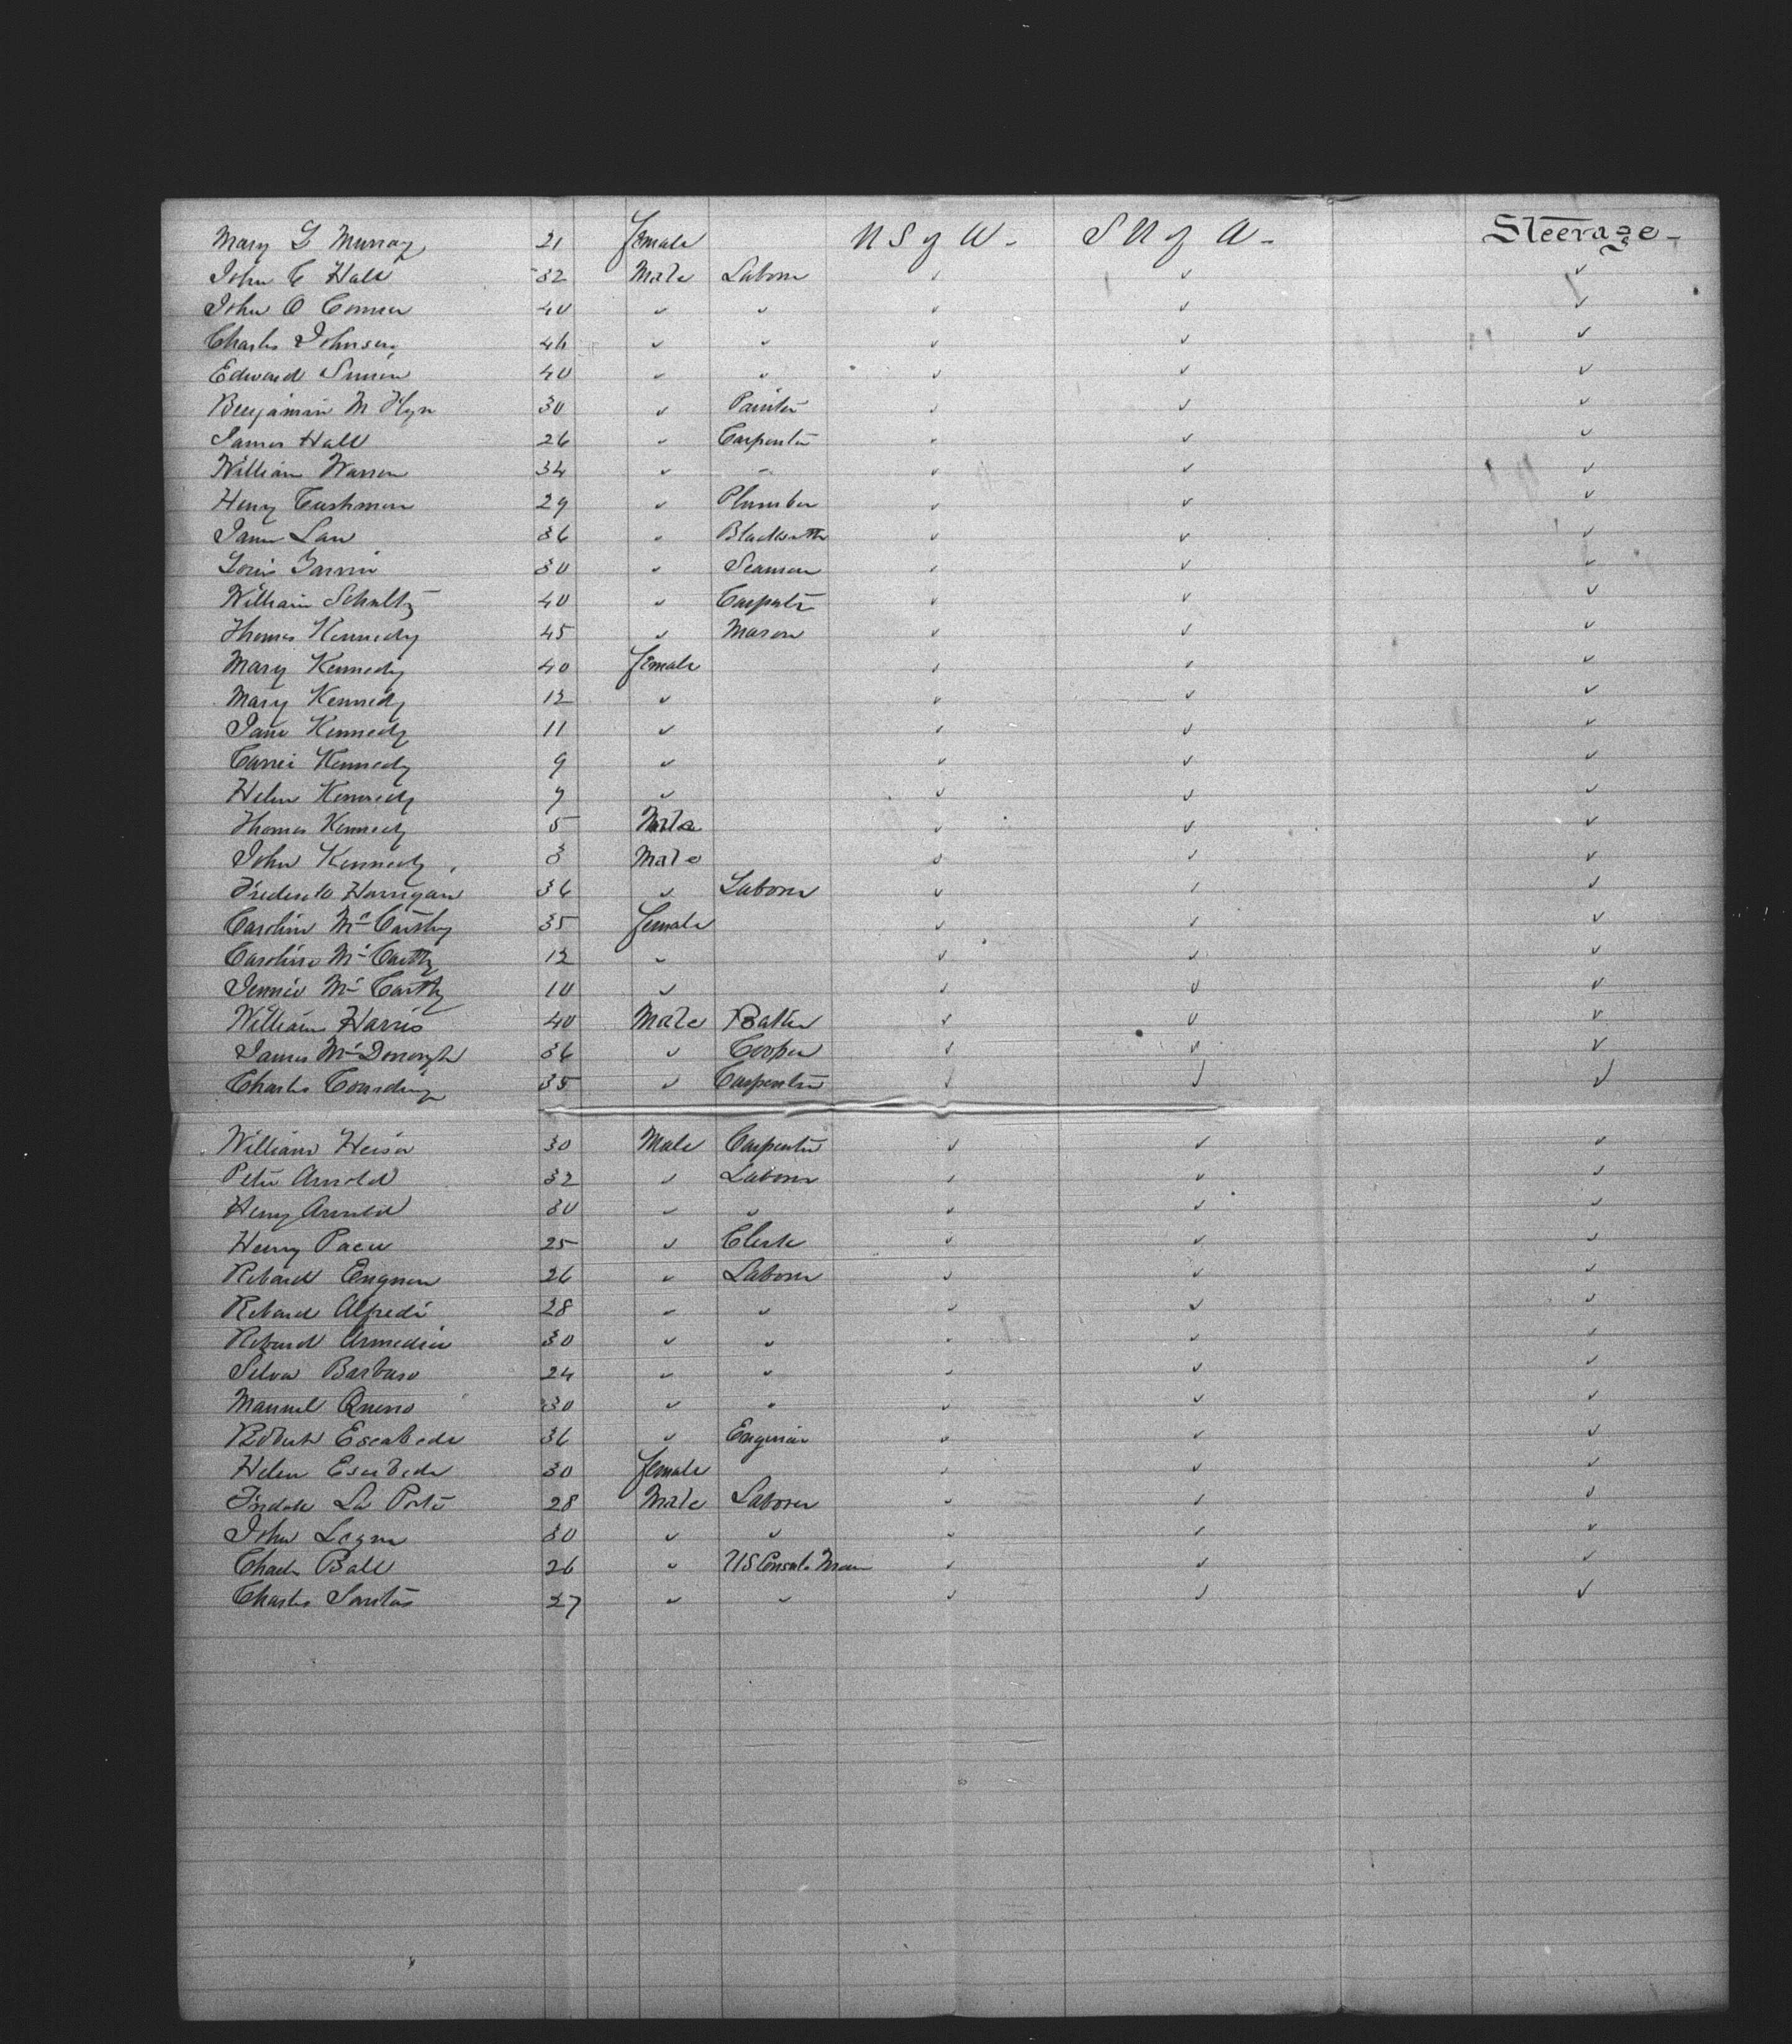 Mary G Murray 21 female U S of A - S U of A - Steerage -
John C Hall 32 Male Labour ✓ ✓ ✓
John O Connor 40 ✓ ✓ ✓ ✓ ✓
Charles Johnson 46 ✓ ✓ ✓ ✓ ✓
Edward 40 ✓ ✓ ✓ ✓ ✓
Benjamin M Flyn 30 ✓ Painter ✓ ✓ ✓
James Hall 26 ✓ Carpenter ✓ ✓ ✓
William Warren 34 ✓ ✓ ✓ ✓ ✓
Henry Cushman 29 ✓ Plumber ✓ ✓ ✓
James Law 36 ✓ Blacksmith ✓ ✓ ✓
Louis 30 ✓ Seaman ✓ ✓ ✓
William Schultz 40 ✓ Carpenter ✓ ✓ ✓
Thomas Kennedy 45 ✓ Mason ✓ ✓ ✓
Mary Kennedy 40 female ✓ ✓ ✓
Mary Kennedy 12 ✓ ✓ ✓ ✓
Jane Kennedy 11 ✓ ✓ ✓ ✓
Carrie Kennedy 9 ✓ ✓ ✓ ✓
Helen Kennedy 7 ✓ ✓ ✓ ✓
Thomas Kennedy 5 Male ✓ ✓ ✓
John Kennedy 3 Male ✓ ✓ ✓
Frederick Harrigan 36 ✓ Laborer ✓ ✓ ✓
Caroline McCarthy 35 female ✓ ✓ ✓
Caroline McCarthy 12 ✓ ✓ ✓ ✓
Jennie McCarthy 10 ✓ ✓ ✓ ✓
William Harris 40 Male ✓ ✓ ✓
James McDonough 36 ✓ Cooper ✓ ✓ ✓
Charles 35 ✓ Carpenter ✓ ✓ ✓
William Heiser 30 Male Carpenter ✓ ✓ ✓
Peter Arnold 32 ✓ Laborer ✓ ✓ ✓
Henry Arnold 30 ✓ ✓ ✓ ✓ ✓
Henry 25 ✓ Clerk ✓ ✓ ✓
26 ✓ Laborer ✓ ✓ ✓
Alfredi 28 ✓ ✓ ✓ ✓ ✓
30 ✓ ✓ ✓ ✓ ✓
Silva Barbaso 24 ✓ ✓ ✓ ✓ ✓
Manuel 30 ✓ ✓ ✓ ✓ ✓
Robert Escabede 36 ✓ Engineer ✓ ✓ ✓
Helen Escabede 30 female ✓ ✓ ✓
La Porte 28 Male Laborer ✓ ✓ ✓
John 30 ✓ ✓ ✓ ✓ ✓
Charles Ball 26 ✓ US Consuls Man ✓ ✓ ✓
Charles Santos 27 ✓ ✓ ✓ ✓ ✓